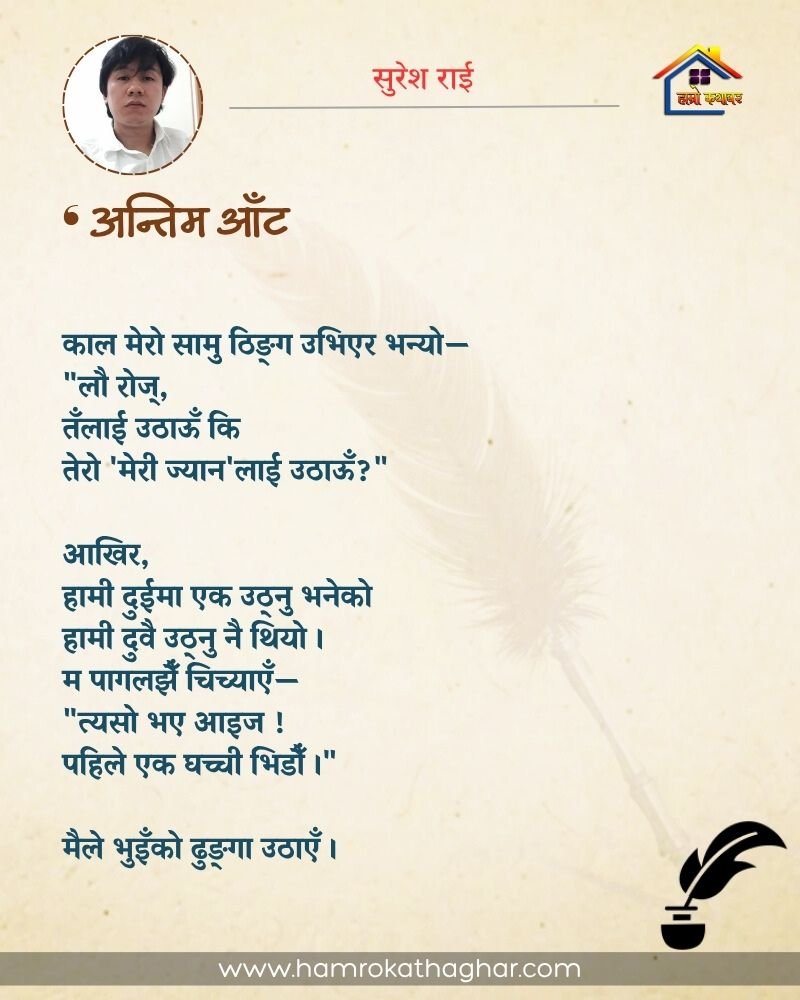 सुरेश राई
हाम्रो कथाघर
‘ अन्तिम आँट
काल मेरो सामु ठिङ्ग उभिएर भन्यो—
"लौ रोज्,
तँलाई उठाऊँ कि
तेरो 'मेरी ज्यान'लाई उठाऊँ?"
आखिर,
हामी दुईमा एक उठ्नु भनेको
हामी दुवै उठ्नु नै थियो ।
म पागलझैँ चिच्याएँ—
"त्यसो भए आइज !
पहिले एक घच्ची भिडौँ ।"
मैले भुइँको ढुङ्गा उठाएँ ।
www.hamrokathaghar.com